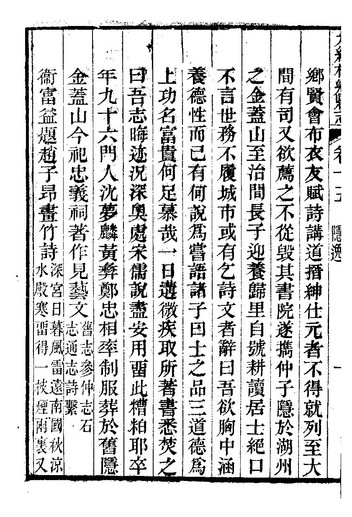 鄉賢會布衣友賦詩講道搢紳仕元者不得就列至大
間有司又欲薦之不從毀其書院遂攜仲子隱於湖州
之金蓋山至治間長子迎養歸里自號耕讀居士絕口
不言世務不履城市或有乞詩文者辭曰吾欲胸中涵
養德性而已有何說為嘗語諸子曰士之品三道德為
上功名富貴何足慕哉一日遘微疾取所著書悉焚之
曰吾志晦迹況深奧處宋儒說盡安用畱此糟粕耶卒
年九十六門人沈夢麟黃彝鄭忠相率制服葬於舊隱
金蓋山今祀忠義祠著作見藝文舊志參仲志石
志通志詩繫
衞富益題趙子昂畫竹詩深宮日暮風雷遠南國秋涼
水殿寒畱得一披煙雨裏又
卷十五
隱逸